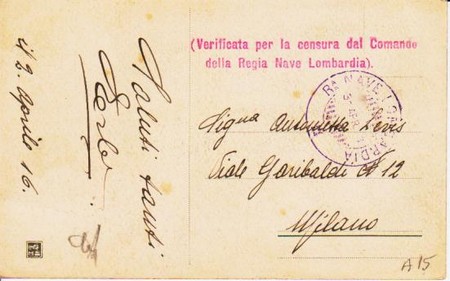 il 2. Aprile 16.
Saluti tanti
Carlo
(Verificata per la censura dal Comando
della Regia Nave Lombardia).
Rª NAVE LOMBARDIA
Sigña Antonietta
Viale Garibaldi Nº 12
Milano
A15